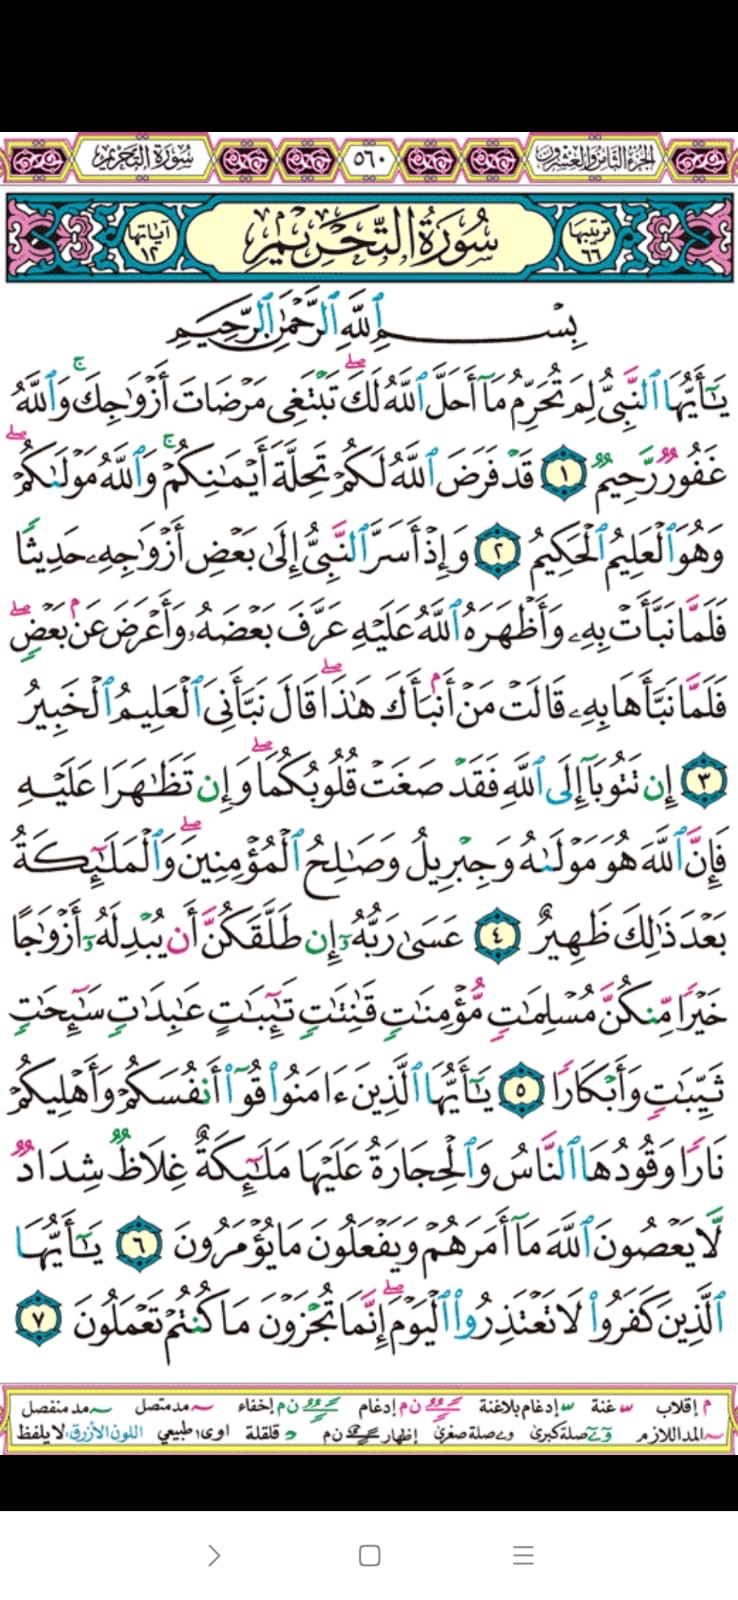 الجزء الثامن والعشرون ٥٦٠ سورة التحريم
ترتيبها ٦٦ سُورَةُ التَّحْرِيمِ آياتها ١٢
بِسْمِ ٱللَّهِ ٱلرَّحْمَٰنِ ٱلرَّحِيمِ
يَٰٓأَيُّهَا ٱلنَّبِىُّ لِمَ تُحَرِّمُ مَآ أَحَلَّ ٱللَّهُ لَكَ ۖ تَبْتَغِى مَرْضَاتَ أَزْوَٰجِكَ ۚ وَٱللَّهُ
غَفُورٌ رَّحِيمٌ ١ قَدْ فَرَضَ ٱللَّهُ لَكُمْ تَحِلَّةَ أَيْمَٰنِكُمْ ۚ وَٱللَّهُ مَوْلَىٰكُمْ ۖ
وَهُوَ ٱلْعَلِيمُ ٱلْحَكِيمُ ٢ وَإِذْ أَسَرَّ ٱلنَّبِىُّ إِلَىٰ بَعْضِ أَزْوَٰجِهِۦ حَدِيثًا
فَلَمَّا نَبَّأَتْ بِهِۦ وَأَظْهَرَهُ ٱللَّهُ عَلَيْهِ عَرَّفَ بَعْضَهُۥ وَأَعْرَضَ عَنۢ بَعْضٍ ۖ
فَلَمَّا نَبَّأَهَا بِهِۦ قَالَتْ مَنْ أَنۢبَأَكَ هَٰذَا ۖ قَالَ نَبَّأَنِىَ ٱلْعَلِيمُ ٱلْخَبِيرُ
٣ إِن تَتُوبَآ إِلَى ٱللَّهِ فَقَدْ صَغَتْ قُلُوبُكُمَا ۖ وَإِن تَظَٰهَرَا عَلَيْهِ
فَإِنَّ ٱللَّهَ هُوَ مَوْلَىٰهُ وَجِبْرِيلُ وَصَٰلِحُ ٱلْمُؤْمِنِينَ ۖ وَٱلْمَلَٰٓئِكَةُ
بَعْدَ ذَٰلِكَ ظَهِيرٌ ٤ عَسَىٰ رَبُّهُۥٓ إِن طَلَّقَكُنَّ أَن يُبْدِلَهُۥٓ أَزْوَٰجًا
خَيْرًا مِّنكُنَّ مُسْلِمَٰتٍ مُّؤْمِنَٰتٍ قَٰنِتَٰتٍ تَٰٓئِبَٰتٍ عَٰبِدَٰتٍ سَٰٓئِحَٰتٍ
ثَيِّبَٰتٍ وَأَبْكَارًا ٥ يَٰٓأَيُّهَا ٱلَّذِينَ ءَامَنُوا۟ قُوٓا۟ أَنفُسَكُمْ وَأَهْلِيكُمْ
نَارًا وَقُودُهَا ٱلنَّاسُ وَٱلْحِجَارَةُ عَلَيْهَا مَلَٰٓئِكَةٌ غِلَاظٌ شِدَادٌ
لَّا يَعْصُونَ ٱللَّهَ مَآ أَمَرَهُمْ وَيَفْعَلُونَ مَا يُؤْمَرُونَ ٦ يَٰٓأَيُّهَا
ٱلَّذِينَ كَفَرُوا۟ لَا تَعْتَذِرُوا۟ ٱلْيَوْمَ ۖ إِنَّمَا تُجْزَوْنَ مَا كُنتُمْ تَعْمَلُونَ ٧
م إقلاب غنة إدغام بلاغنة ن م إدغام ن م إخفاء مد متصل مد منفصل
المد اللازم صلة كبرى صلة صغرى إظهار ن م قلقلة اوى طبيعي اللون الأزرق لا يلفظ